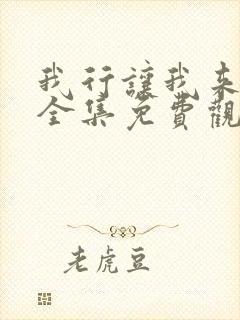 我行讓我来
全集免費觀
老虎豆